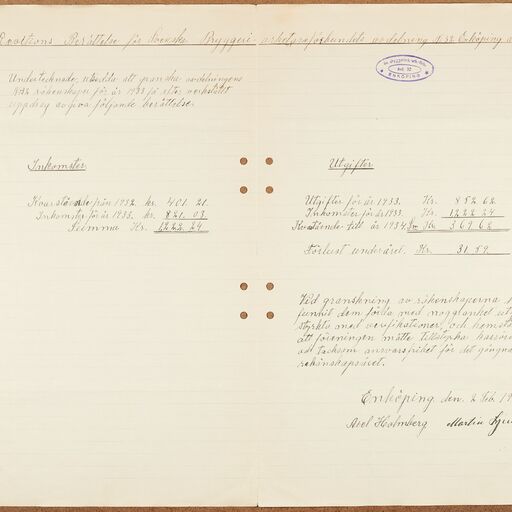 Revisions Berättelse för Svenska Bryggeri-arbetareförbundets avdelning N:32 Enköping
ENKÖPING
Undertecknade, utsedda att granska avdelningens
räkenskaper för år 1933 få efter verkställt
uppdrag avgiva följande berättelse.
Inkomster
Kvarstående från 1932. kr. 401.21.
Inkomster för år 1933. kr. 821.03.
Summa Kr. 1222.24
Utgifter
Utgifter för år 1933. Kr. 852.62.
Inkomster för år 1933. Kr. 1222.24
Kvarstående till år 1934. Kr. 369.62
Förlust under året. Kr. 31.59.
Vid granskning av räkenskaperna
funnit dem förda med noggrannhet
styrkta med verifikationer, och
att föreningen måtte tillstyrka
ansvarsfrihet för det gångna
räkenskapsåret.
Enköping den 2 Feb. 19
Axel Holmberg Martin